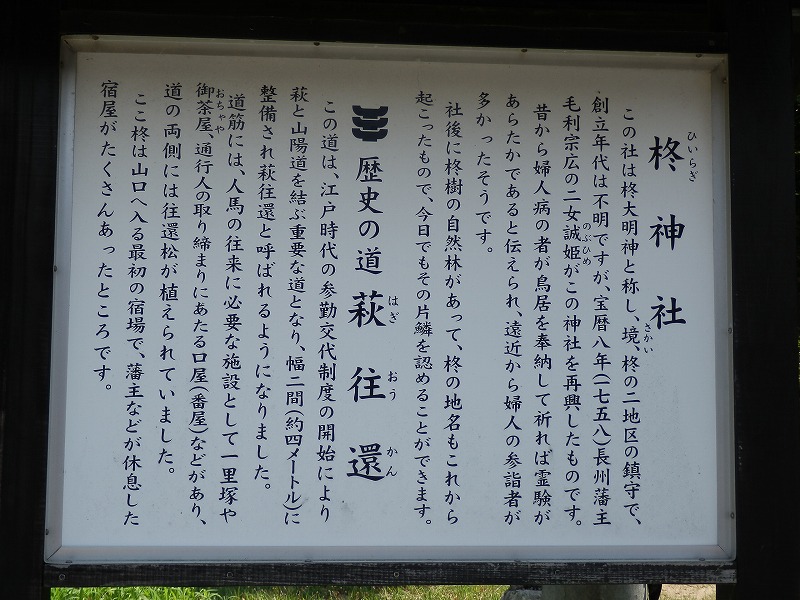 柊神社
ひいらぎ
この社は柊大明神と称し、境、柊の二地区の鎮守で、
さかい
創立年代は不明ですが、宝暦八年(一七五八)長州藩主
毛利宗広の二女誠姫がこの神社を再興したものです。
のぶひめ
昔から婦人病の者が鳥居を奉納して祈れば霊験が
あらたかであると伝えられ、遠近から婦人の参詣者が
多かったそうです。
社後に柊樹の自然林があって、柊の地名もこれから
起こったもので、今日でもその片鱗を認めることができます。
歴史の道萩往還
はぎおうかん
この道は、江戸時代の参勤交代制度の開始により
萩と山陽道を結ぶ重要な道となり、幅二間(約四メートル)に
整備され萩往還と呼ばれるようになりました。
道筋には、人馬の往来に必要な施設として一里塚や
御茶屋、通行人の取り締まりにあたる口屋(番屋)などがあり、
おちゃや
道の両側には往還松が植えられていました。
ここ柊は山口へ入る最初の宿場で、藩主などが休息した
宿屋がたくさんあったところです。